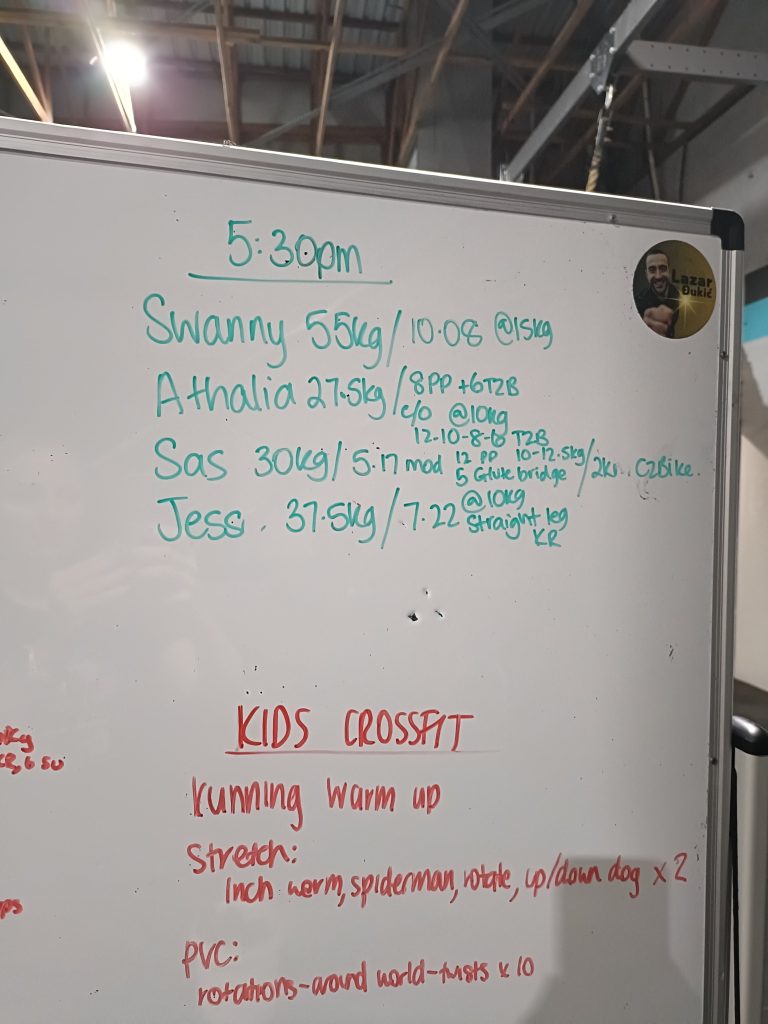 5:30pm
Lazar
Đukić
Swanny 55kg/10.08 @15kg
Athalia 27.5kg/8PP +6T2B
c/o @10kg
12-10-8-6 T2B
Sas 30kg/5.17 mod 12 PP 10-12.5kg/2k C2Bike.
5 Glute bridge
Jess. 37.5kg/7.22 @10kg
Straight leg
KR
KIDS CROSSFIT
running warm up
Stretch:
Inch worm, spiderman, rotate, up/down dog x 2
PVC:
rotations-around world-twists x 10